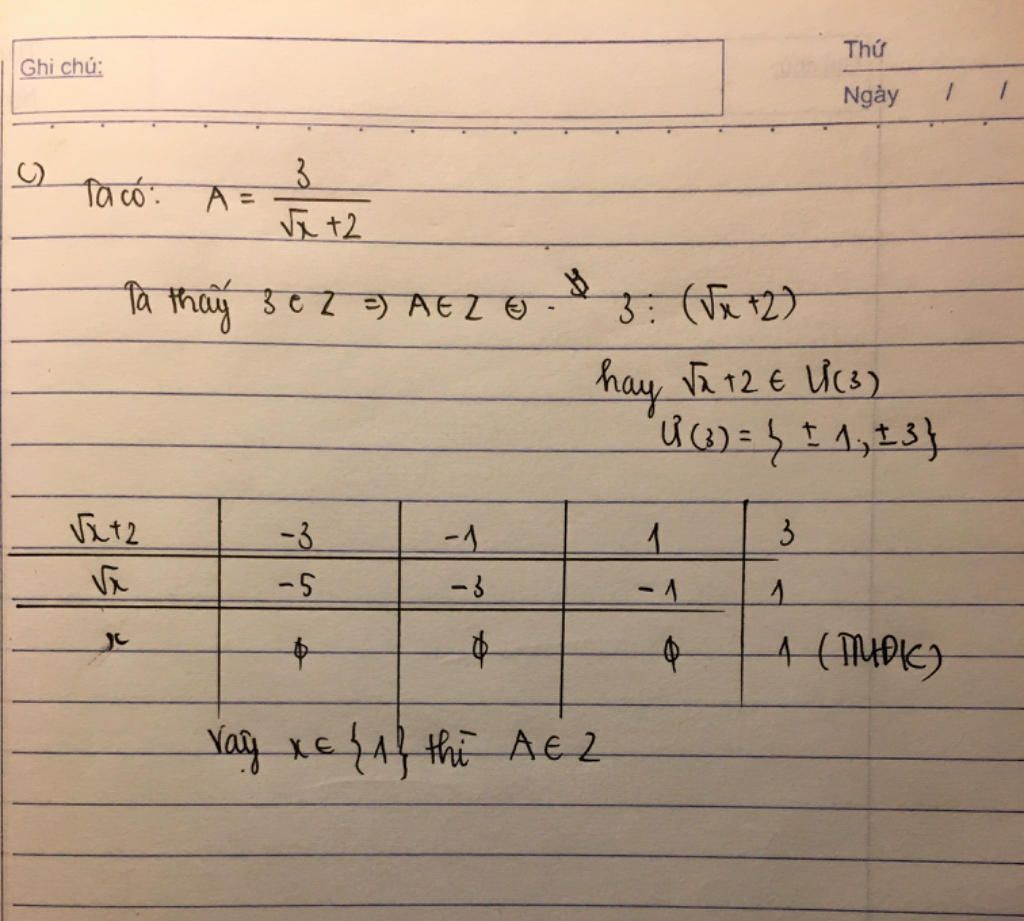 Ghi chú:
Thứ
Ngày / /
c) Ta có: A = 3/(√x +2)
Ta thấy 3 ∈ Z => A ∈ Z <=> 3 ⋮ (√x +2)
hay √x +2 ∈ Ư(3)
Ư(3) = { ± 1 ; ± 3 }
√x+2 -3 -1 1 3
√x -5 -3 -1 1
x ∅ ∅ ∅ 1 (TMĐK)
Vậy x ∈ {1} thì A ∈ Z